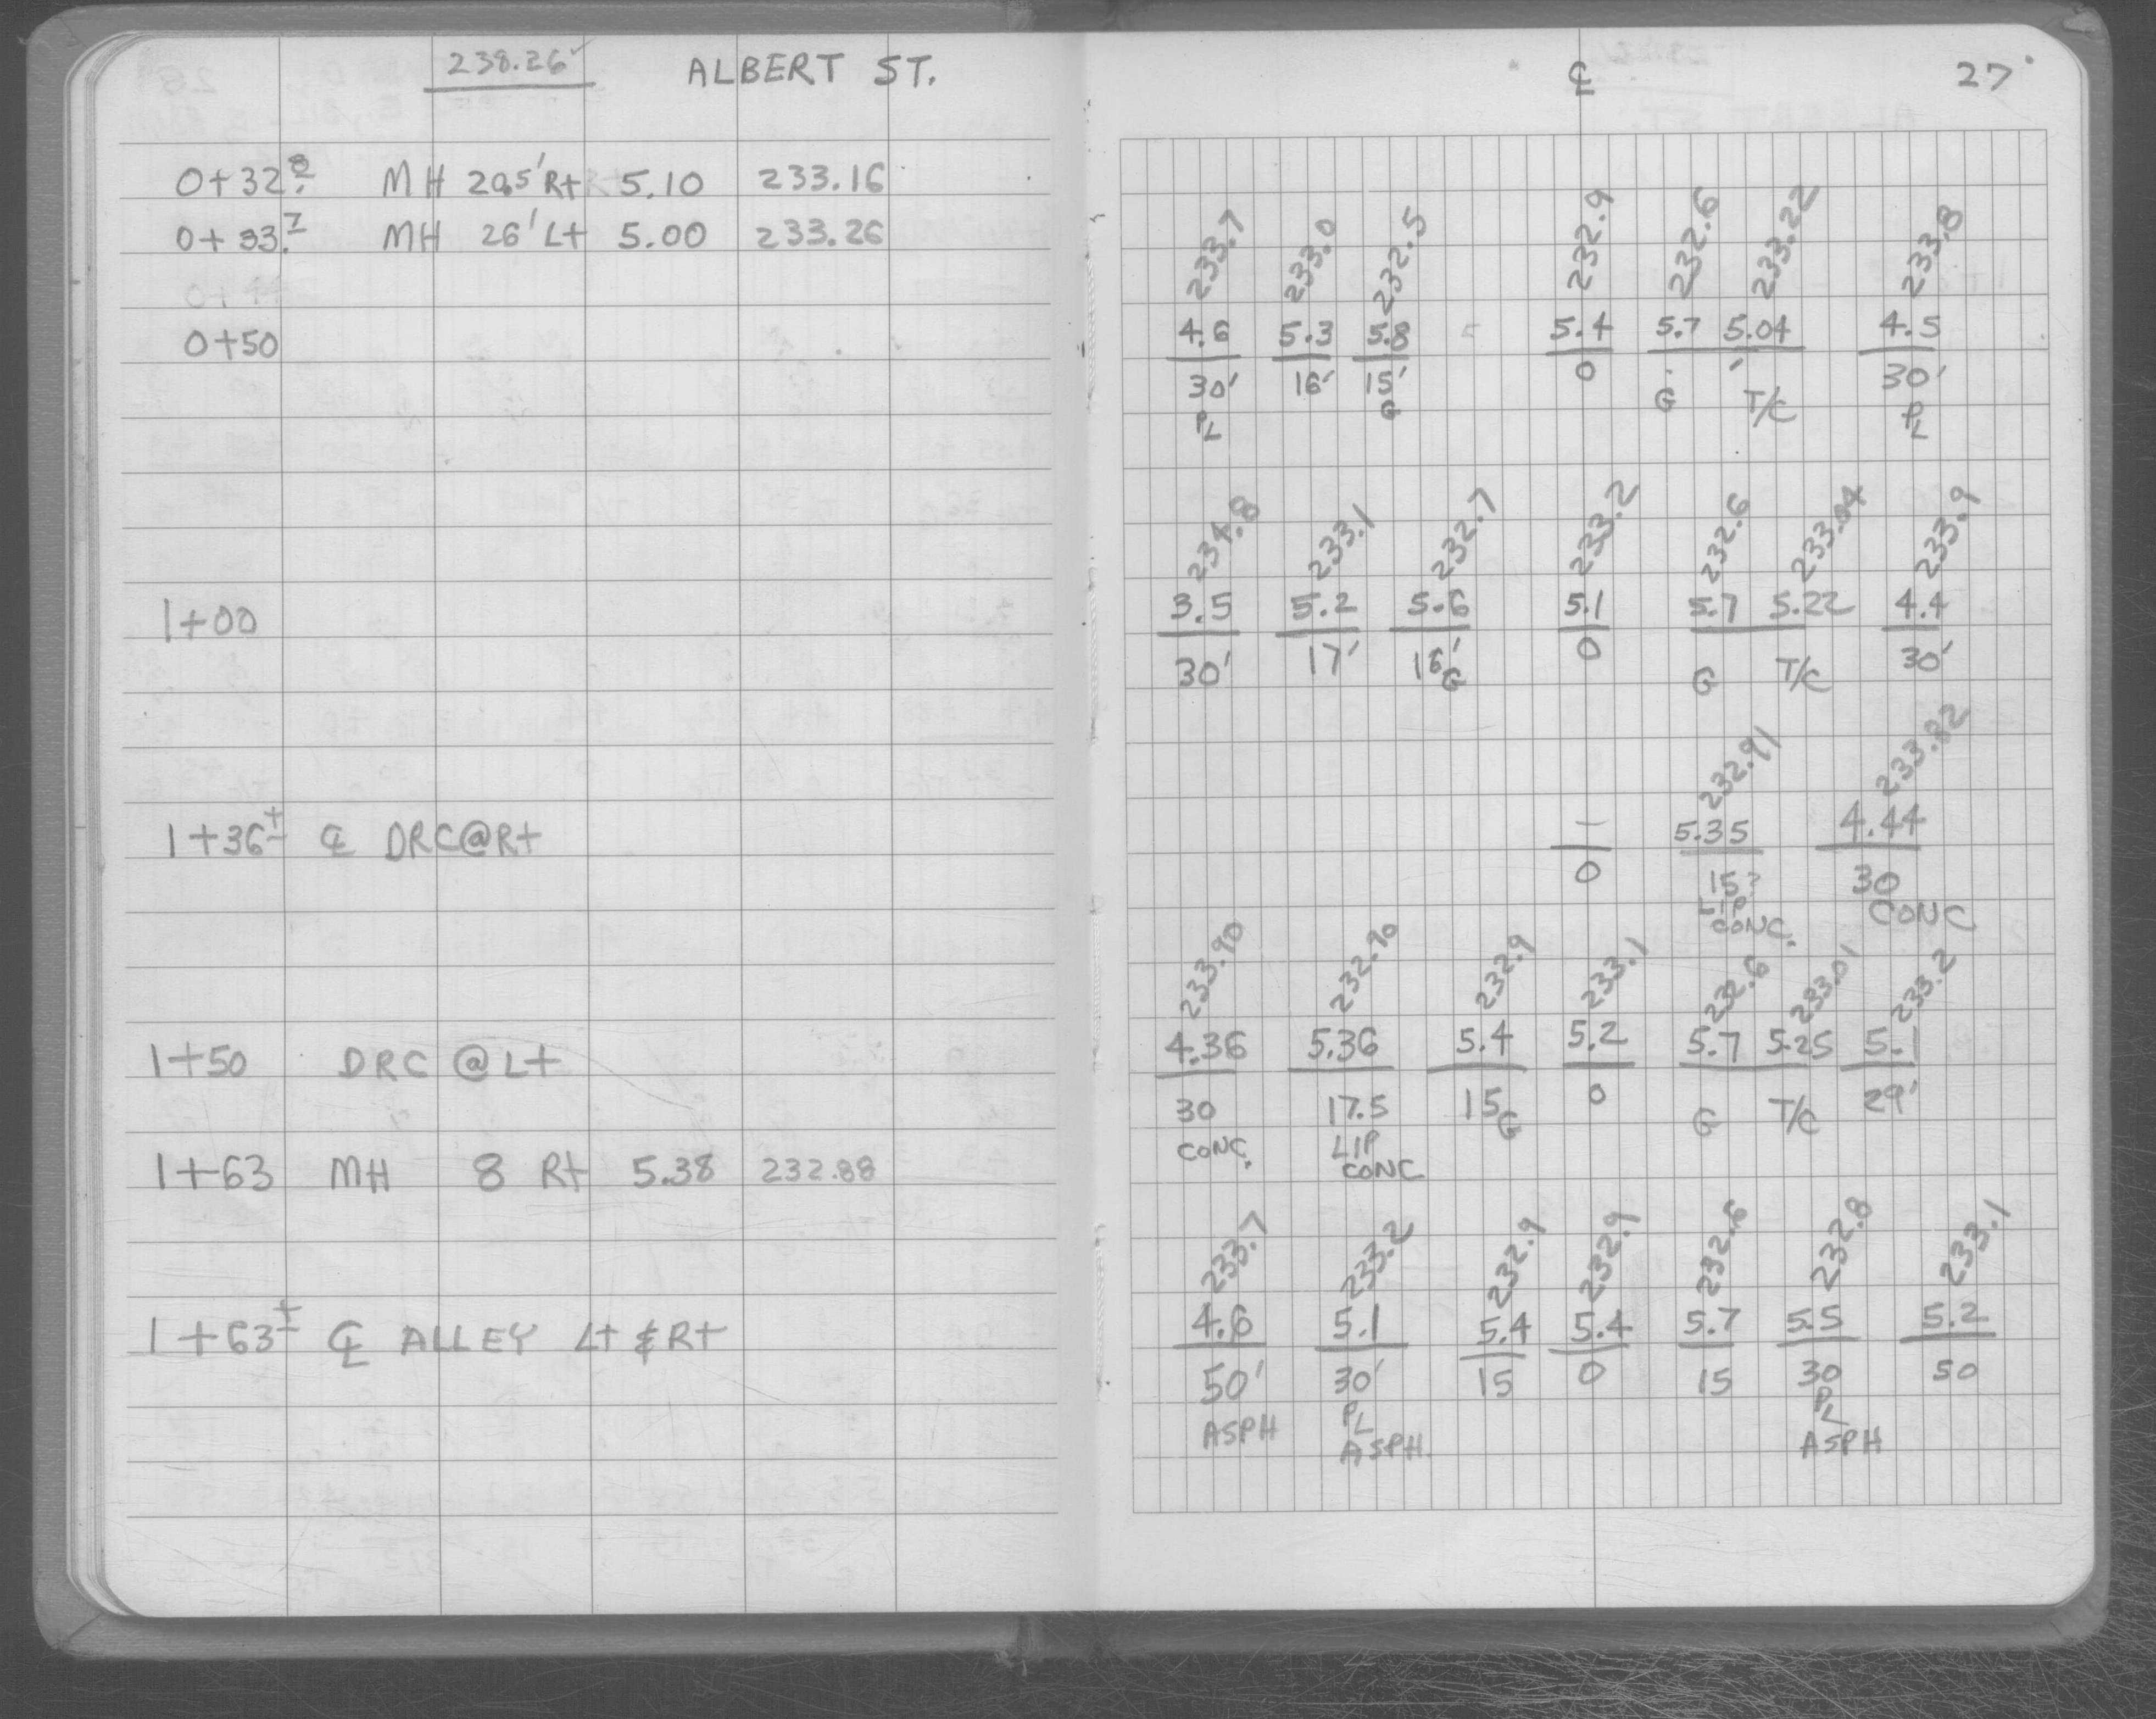 238.26 ✓ ALBERT ST.
0+32.8 MH 20.5' Rt 5.10 233.16
0+33.7 MH 26' Lt 5.00 233.26
0+50
1+00
1+36± ℄ DRC@Rt
1+50 DRC @ Lt
1+63 MH 8 Rt 5.38 232.88
1+63± ℄ ALLEY Lt & Rt
℄ 27
233.7 233.0 232.5 232.9 232.6 233.22 233.8
4.6 5.3 5.8 5.4 5.7 5.04 4.5
30' 16' 15' 0 30'
PL G G T/C PL
234.8 233.1 232.7 233.2 232.6 233.04 233.9
3.5 5.2 5.6 5.1 5.7 5.22 4.4
30' 17' 16' 0 30'
G G T/C
232.91 233.82
— 5.35 4.44
0 15? 30
LIP CONC
CONC.
233.90 232.90 232.9 233.1 232.6 233.01 233.2
4.36 5.36 5.4 5.2 5.7 5.25 5.1
30 17.5 15 0 29'
CONC. LIP G G T/C
CONC
233.7 233.2 232.9 232.9 232.6 232.8 233.1
4.6 5.1 5.4 5.4 5.7 5.5 5.2
50' 30' 15 0 15 30 50
ASPH PL PL
ASPH. ASPH